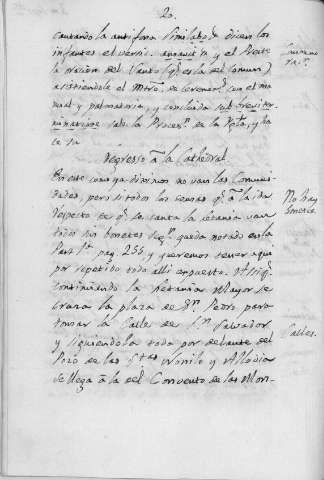 20.
cantando la antifona Similabo dicen los
infantes el versic. annavit y el Preste
la oracion del Santo (q.e es la del Comun)
asistiendole el Mtro. de Ceremon.s con el ma-
nual y palmatoria, y concluida
sale la Proces.n de la Ygla, y ha-
ce su
Regreso â la Cathedral.
En este como ya diximos no van las Comuni-
dades, pero si todos los demas q.e â la ida
Respecto es q.e se canta la Letania van
todos sin bonetes seg.n queda notado en la
Part. 1.a pag. 256, y queremos tener aqui
por repetido todo alli expuesto. Assi q.e
continuando la Letania Mayor se
cruza la plaza de S.n Pedro para
tomar la Calle de S.n Salvador
y siguiendola toda por delante del
Pozo de las S.tas Nunilo y Alodia
se llega â la del Convento de las Mon-
No hay
Calles.